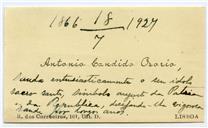 1866 18/7 1927
Antonio Candido Osorio,
sauda entusiasticamente o seu idolo
sacro santo, simbolo augusto da Patria
e da Republica, desejando-lhe vigorosa
saude por longos anos.
R. dos Correeiros, 101, LISBOA